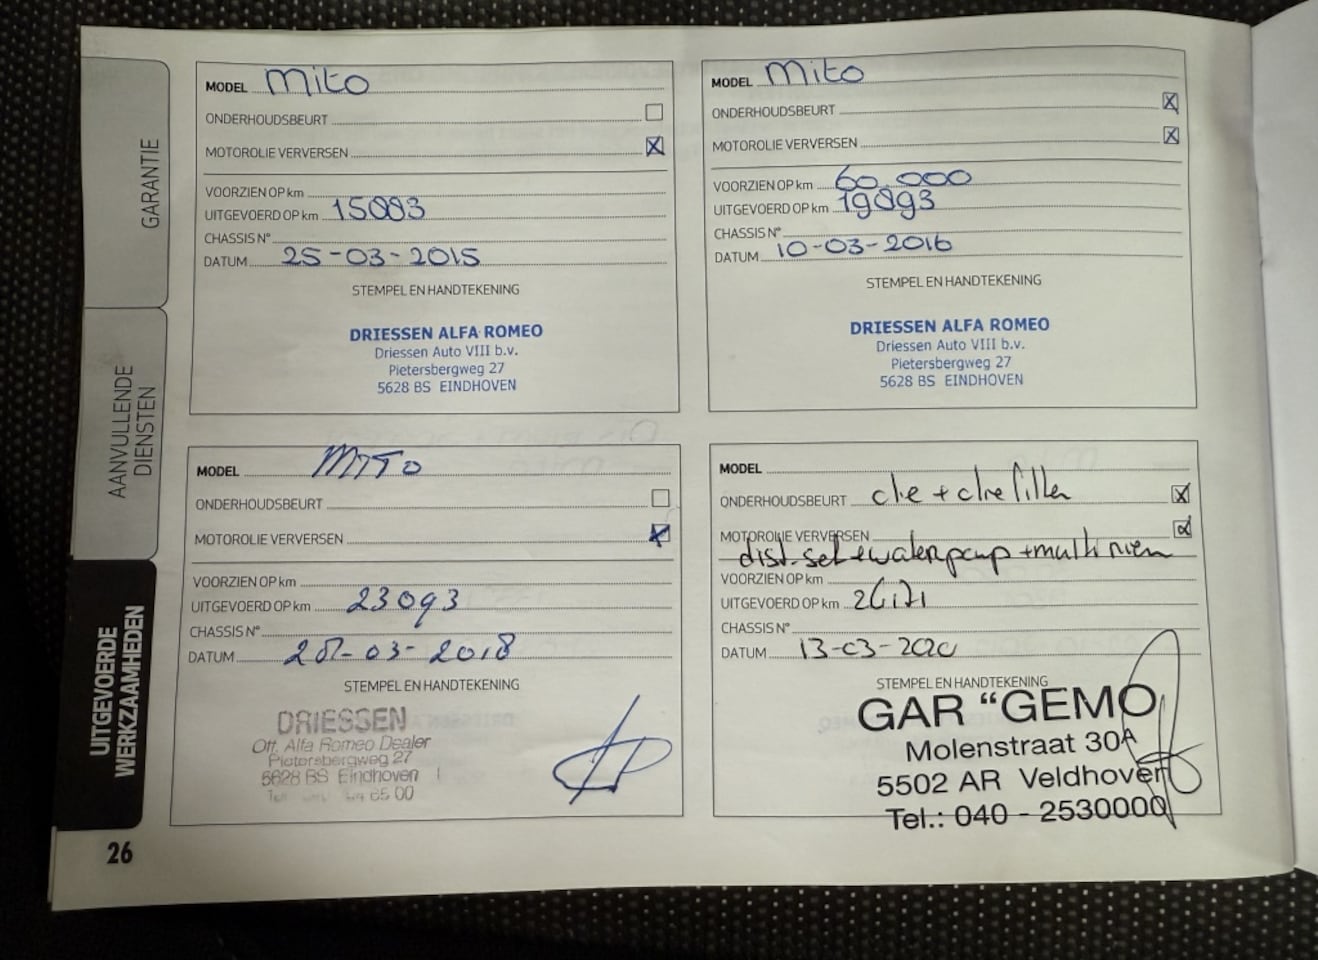 GARANTIE
AANVULLENDE
DIENSTEN
UITGEVOERDE
WERKZAAMHEDEN
26
MODEL Mito
ONDERHOUDSBEURT
MOTOROLIE VERVERSEN
VOORZIEN OP km
UITGEVOERD OP km 15083
CHASSIS Nº
DATUM 25-03-2015
STEMPEL EN HANDTEKENING
DRIESSEN ALFA ROMEO
Driessen Auto VIII b.v.
Pietersbergweg 27
5628 BS EINDHOVEN
MODEL Mito
ONDERHOUDSBEURT
MOTOROLIE VERVERSEN
VOORZIEN OP km 60.000
UITGEVOERD OP km 19893
CHASSIS Nº
DATUM 10-03-2016
STEMPEL EN HANDTEKENING
DRIESSEN ALFA ROMEO
Driessen Auto VIII b.v.
Pietersbergweg 27
5628 BS EINDHOVEN
MODEL MITO
ONDERHOUDSBEURT
MOTOROLIE VERVERSEN
VOORZIEN OP km
UITGEVOERD OP km 23093
CHASSIS Nº
DATUM -03-2018
STEMPEL EN HANDTEKENING
DRIESSEN
Off. Alfa Romeo Dealer
Pietersbergweg 27
5628 BS Eindhoven
65 00
MODEL
ONDERHOUDSBEURT olie + olie filter
MOTOROLIE VERVERSEN
dist. set + waterpomp + multi riem
VOORZIEN OP km
UITGEVOERD OP km 26171
CHASSIS Nº
DATUM 13-03-2020
STEMPEL EN HANDTEKENING
GAR "GEMO
Molenstraat 30A
5502 AR Veldhoven
Tel.: 040 - 2530000